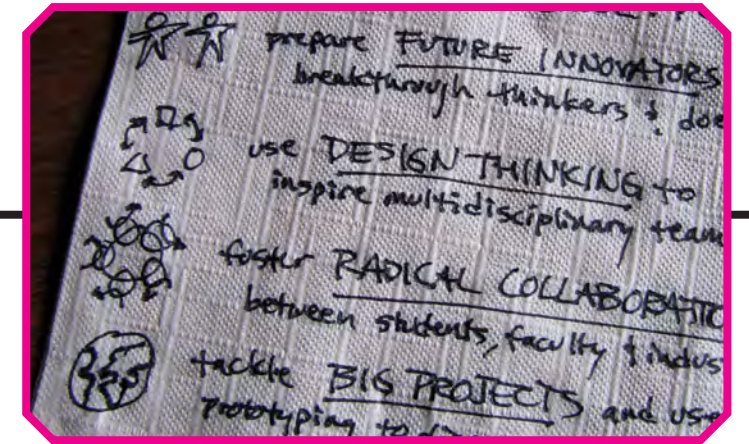 prepare FUTURE INNOVATORS
breakthrough thinkers & doe
use DESIGN THINKING to
inspire multidisciplinary team
foster RADICAL COLLABORATIO
between students, faculty & indus
tackle BIG PROJECTS and use
prototyping to di